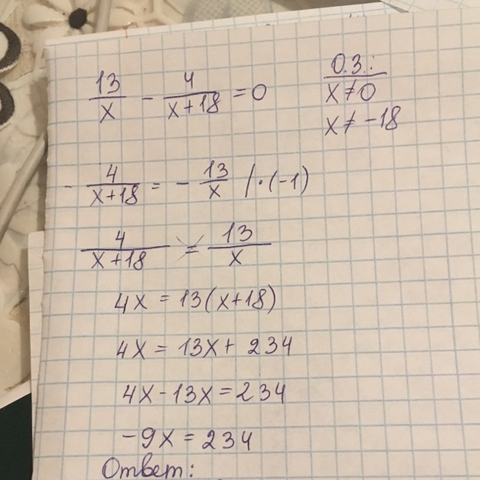 13/x - 4/(x+18) = 0
О.З.:
x ≠ 0
x ≠ -18
- 4/(x+18) = - 13/x /·(-1)
4/(x+18) = 13/x
4x = 13(x+18)
4x = 13x + 234
4x - 13x = 234
-9x = 234
Ответ: